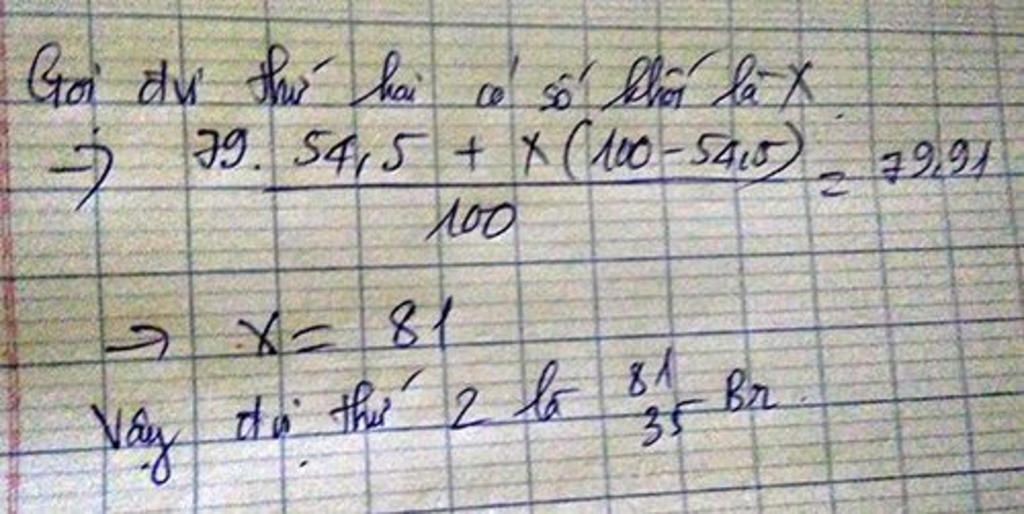 Gọi đv thứ hai có số khối là X
=> 79. 54,5 + X(100-54,5) = 79,91
100
=> X = 81
Vậy đv thứ 2 là ⁸¹₃₅Br.